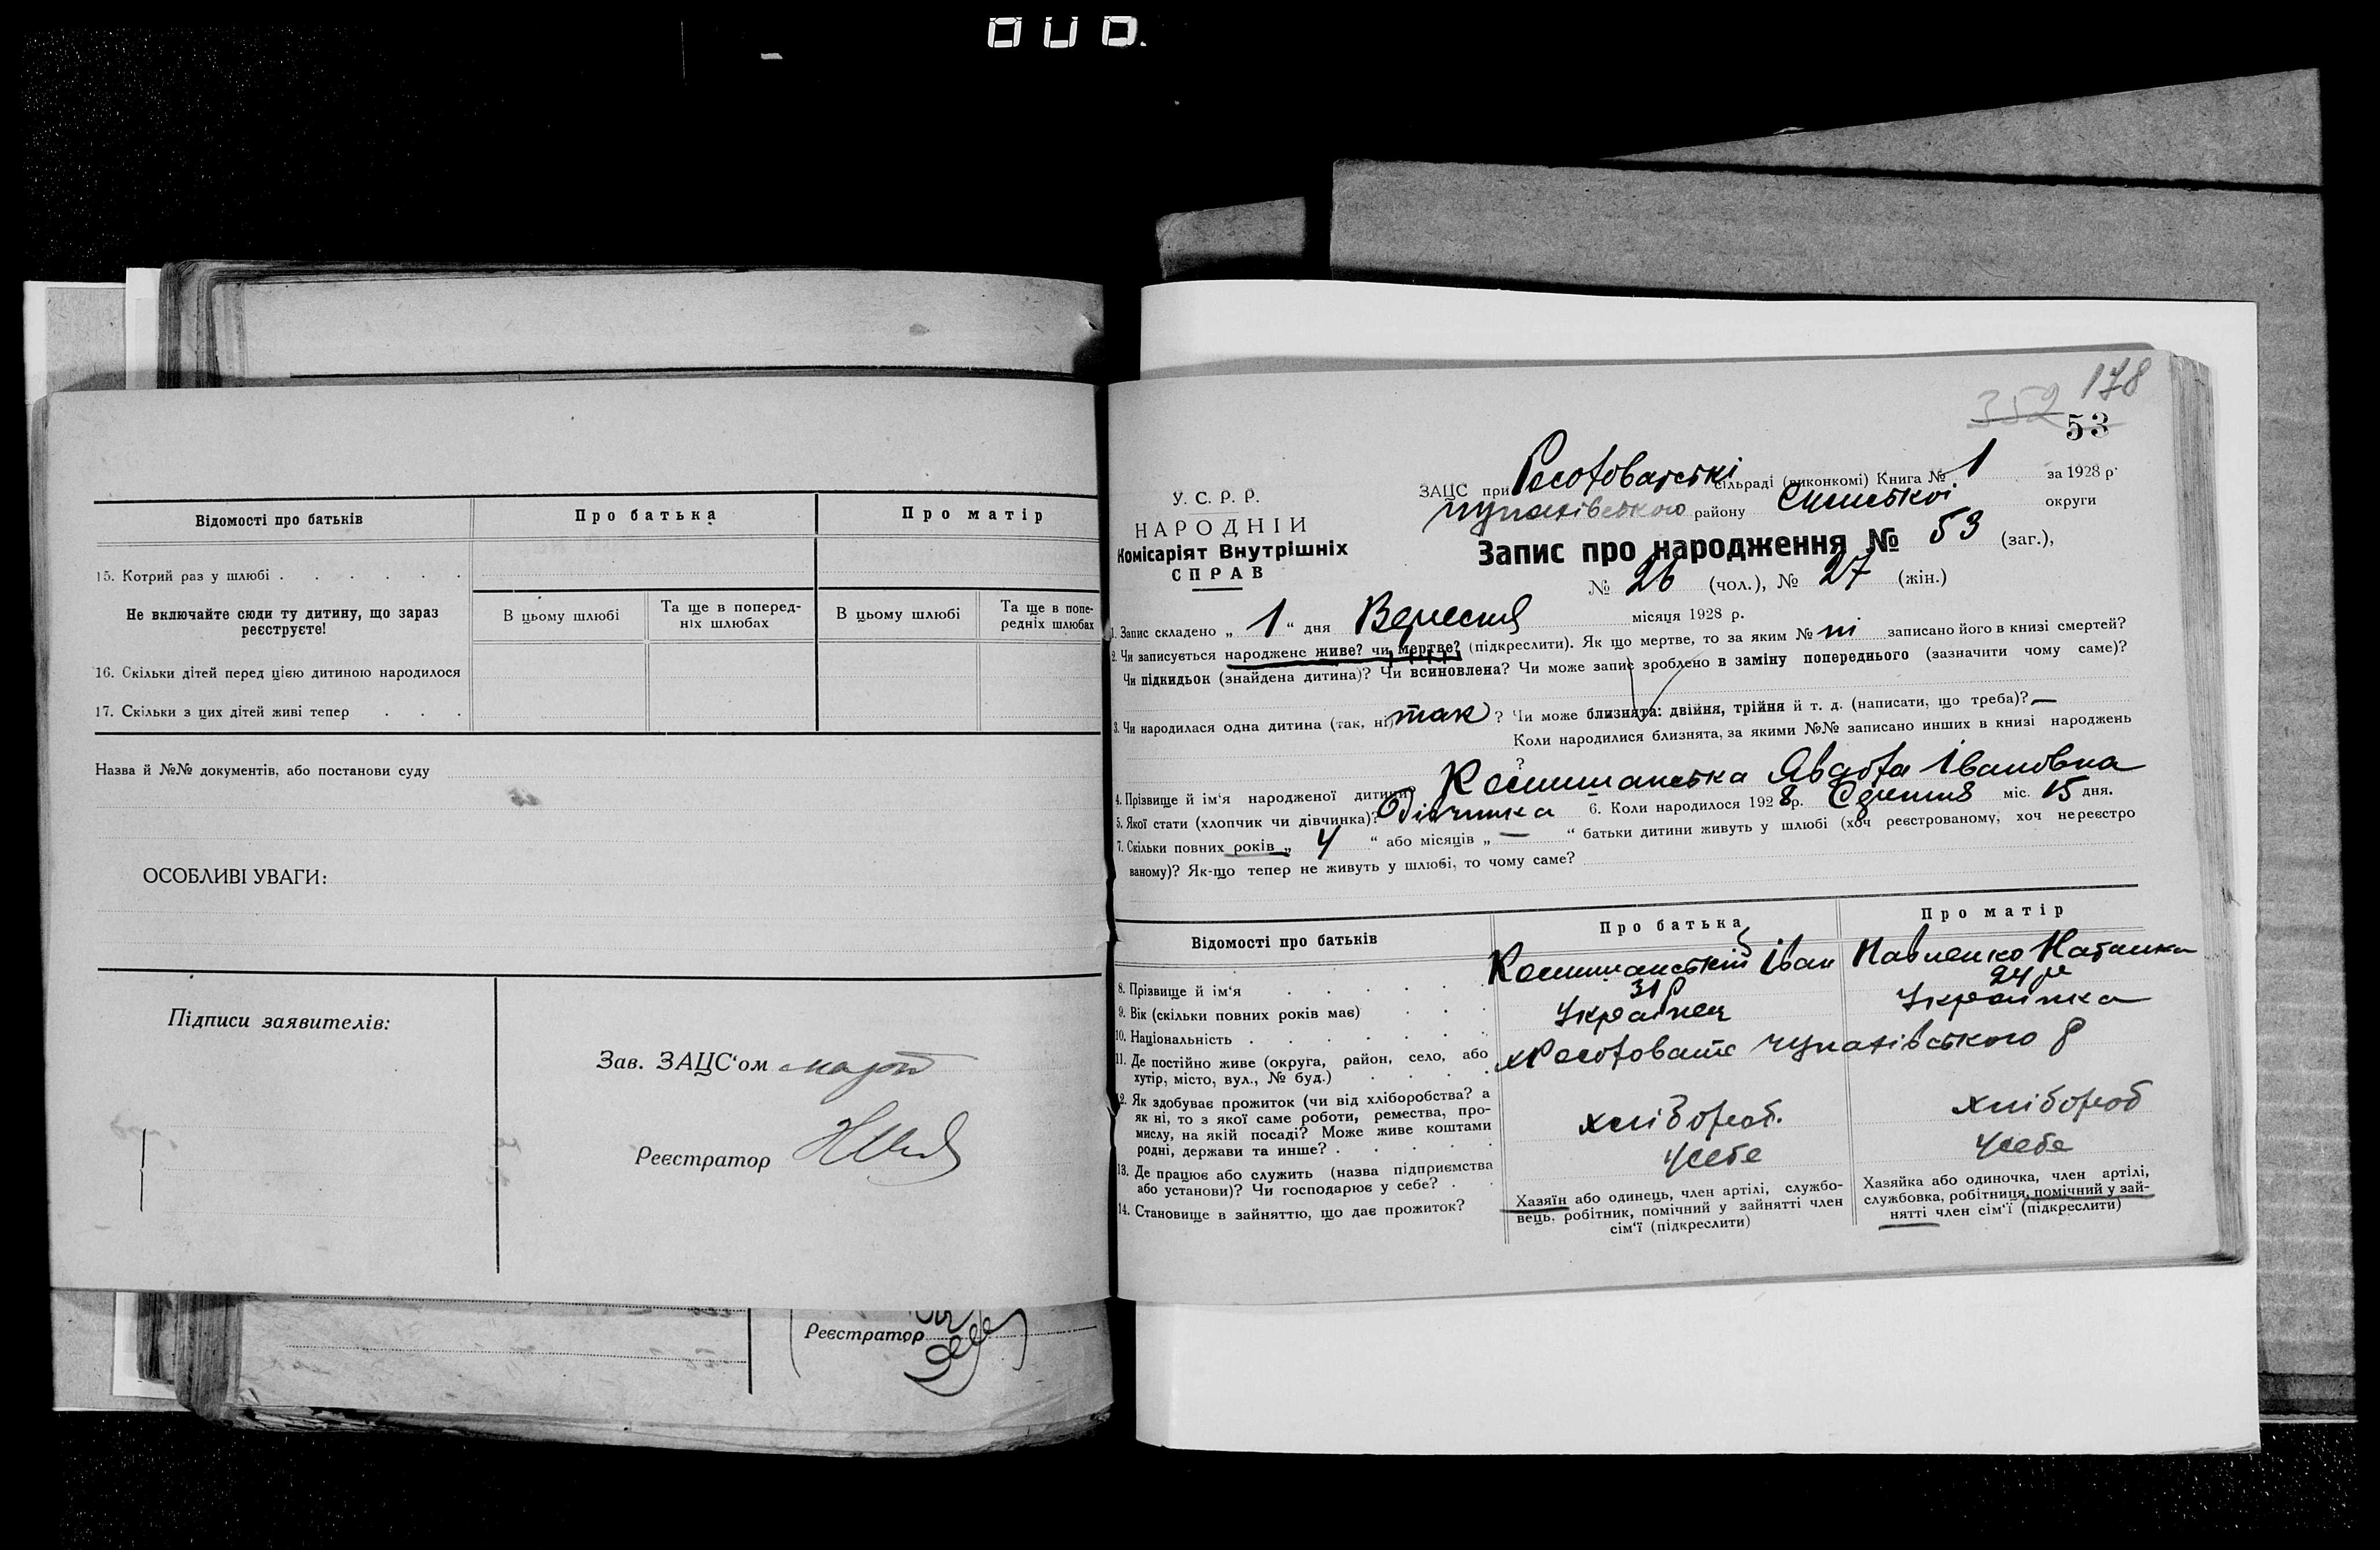 000.
Відомості про батьків
Про батька
Про матір
15. Котрий раз у шлюбі . . . . . .
Не включайте сюди ту дитину, що зараз
реєструєте!
В цьому шлюбі
Та ще в поперед-
ніх шлюбах
В цьому шлюбі
Та ще в попе-
редніх шлюбах
16. Скільки дітей перед цією дитиною народилося
17. Скільки з цих дітей живі тепер . . .
Назва й №№ документів, або постанови суду
ОСОБЛИВІ УВАГИ:
Підписи заявителів:
Зав. ЗАЦС'ом
Реєстратор
Реєстратор
352 178
53
У. С. Р. Р.
НАРОДНІЙ
Комісаріят Внутрішніх
СПРАВ
ЗАЦС при сільраді (виконкомі) Книга № 1 за 1928 р.
чупахівського району Сумської округи
Запис про народження № 53 (заг.),
№ 26 (чол.), № 27 (жін.)
1. Запис складено „ 1 “ дня Вересня місяця 1928 р.
2. Чи записується народжене живе? чи мертве? (підкреслити). Як що мертве, то за яким № ні записано його в книзі смертей?
Чи підкидьок (знайдена дитина)? Чи всиновлена? Чи може запис зроблено в заміну попереднього (зазначити чому саме)?
3. Чи народилася одна дитина (так, ні) так ? Чи може близнята: двійня, трійня й т. д. (написати, що треба)? —
Коли народилися близнята, за якими №№ записано инших в книзі народжень
?
4. Прізвище й ім'я народженої дитини? Івановна
5. Якої статі (хлопчик чи дівчинка)? Дівчинка 6. Коли народилося 1928 р. Серпня міс. 15 дня.
7. Скільки повних років „ 4 “ або місяців „ — “ батьки дитини живуть у шлюбі (хоч реєстрованому, хоч нереєстро
ваному)? Як-що тепер не живуть у шлюбі, то чому саме?
Відомості про батьків
Про батька
Про матір
8. Прізвище й ім'я . . . . .
Іван
Павленко Наталка
9. Вік (скільки повних років має) . . .
31 р
24 р
10. Національність . . . . . .
Українец
Українка
11. Де постійно живе (округа, район, село, або
хутір, місто, вул., № буд.) . . . .
чупахівського р
12. Як здобуває прожиток (чи від хліборобства? а
як ні, то з якої саме роботи, ремества, про-
мислу, на якій посаді? Може живе коштами
родні, держави та инше? . . . . .
хлібороб.
хлібороб
13. Де працює або служить (назва підприємства
або установи)? Чи господарює у себе? . .
Усебе
Усебе
14. Становище в зайняттю, що дає прожиток?
Хазяїн або одинець, член артілі, службо-
вець, робітник, помічний у зайнятті член
сім'ї (підкреслити)
Хазяйка або одиночка, член артілі,
службовка, робітниця, помічний у зай-
нятті член сім'ї (підкреслити)